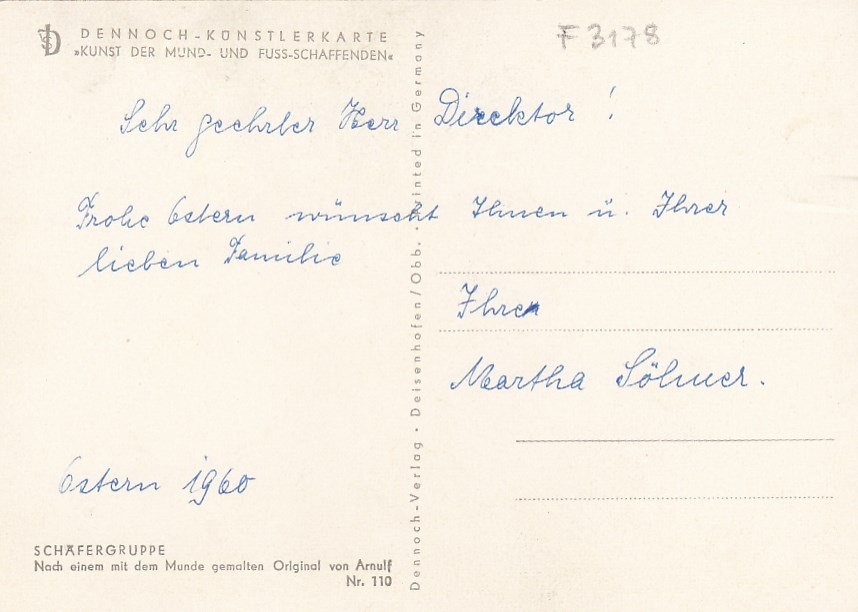 DENNOCH-KÜNSTLERKARTE
»KUNST DER MUND- UND FUSS-SCHAFFENDEN«
F 3178
Sehr geehrter Herr Direktor !
Frohe Ostern wünscht Ihnen u. Ihrer
lieben Familie
Ihre
Martha Söhner.
Ostern 1960
SCHÄFERGRUPPE
Nach einem mit dem Munde gemalten Original von Arnulf
Nr. 110
Dennoch-Verlag · Deisenhofen/Obb. · Printed in Germany